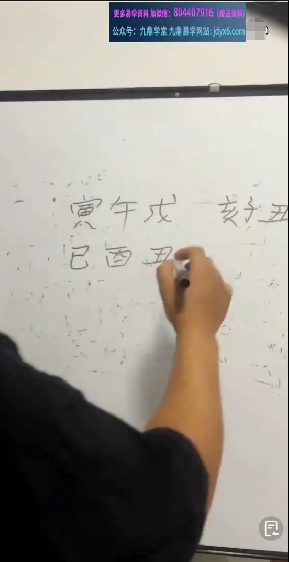 更多易学资料 加微信：804407916（赠送资料）
公众号：九鼎学堂 九鼎易学网站：jdyx6.com
寅午戌 亥子丑
巳酉丑